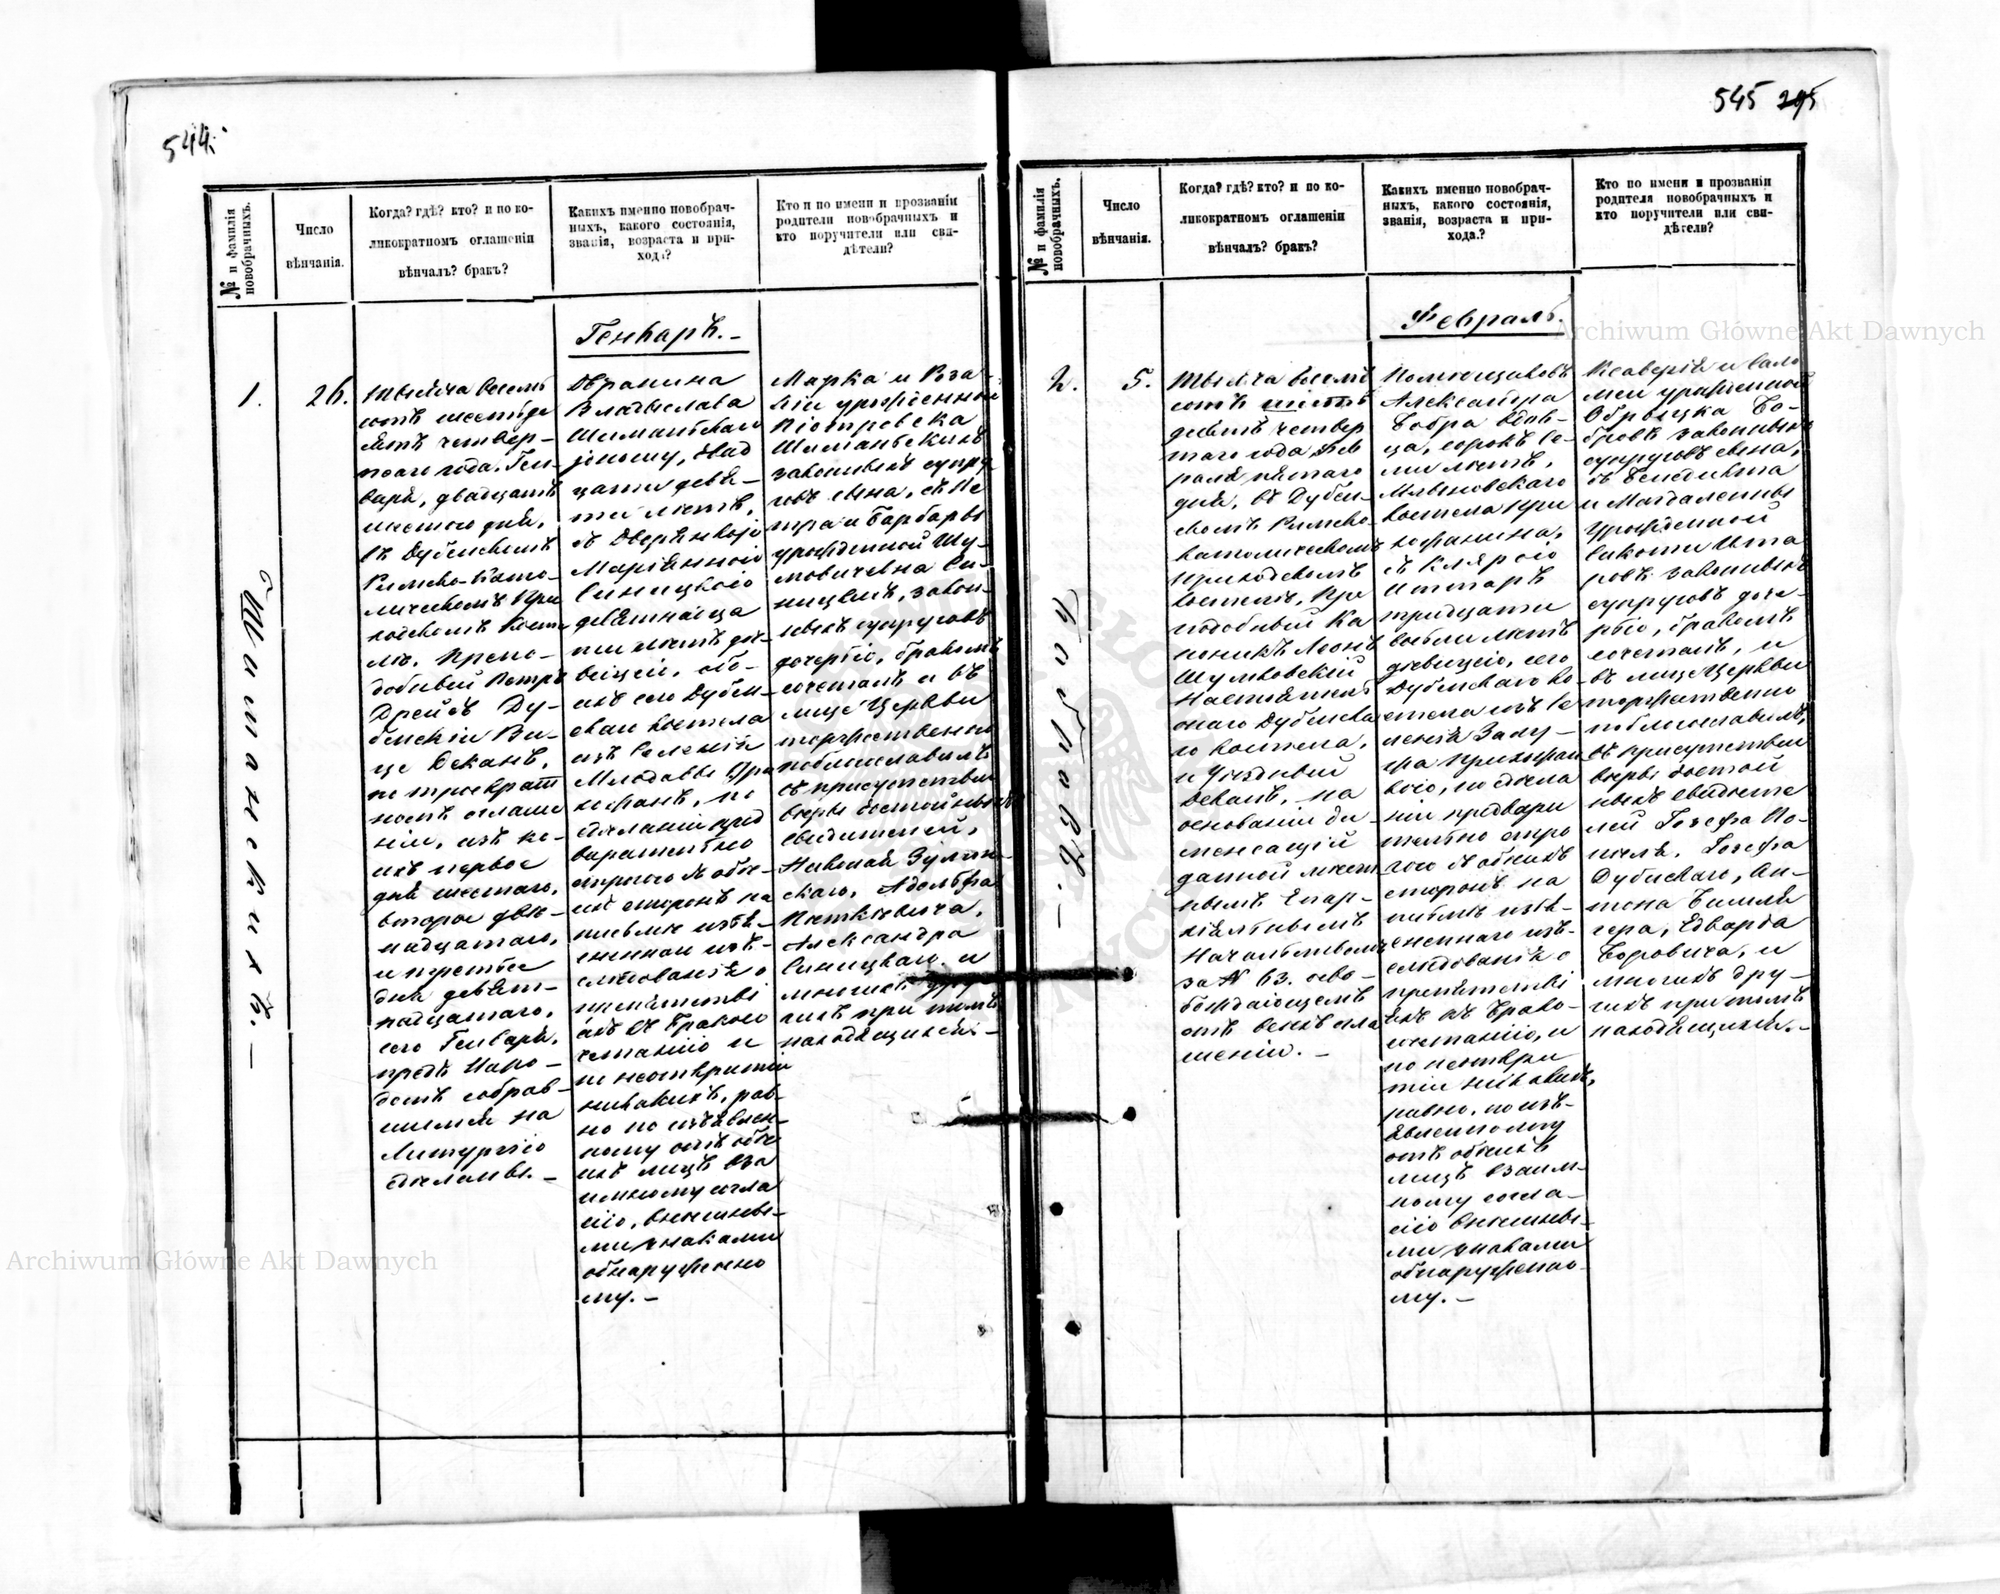 544.
№ и фамилія
новобрачныхъ.
Число
вѣнчанія.
Когда? гдѣ? кто? и по ко-
ликократномъ оглашеніи
вѣнчалъ? бракъ?
Какихъ именно новобрач-
ныхъ, какого состоянія,
званія, возраста и при-
хода?
Кто и по имени и прозваніи
родители новобрачныхъ и
кто поручители или сви-
дѣтели?
Генварь.
1.
Шиманскихъ.
26.
Тысяча восемь
сотъ шестьде
сятъ четвер-
таго года. Ген-
варя, двадцать
шестого дня,
въ Дубенскомъ
Римско-Като-
лическомъ При
ходскомъ Косте
лѣ. Препо-
добный Петръ
Дрейсъ Ду-
бенскій Ви-
це Деканъ,
по троекрат
номъ оглаше
ніи, изъ ко-
ихъ первое
дня шестаго,
второе две-
надцатаго,
и третье
дня девят-
надцатаго,
сего Генваря,
предъ Наро-
домъ собрав-
шимся на
Литургію
сдѣланы.
Дворянина
Владыслава
Шиманскаго
юношу, двад
цати девя-
ти лѣтъ,
съ Дворянкою
Маріянною
Синицкою
девятнадца
ти лѣтъ дѣ-
вицею, обо-
ихъ сего Дубен-
скаго Костела
изъ Селенія
Млодавы При
хожанъ, по
сдѣланіи пред
варительно
строгаго съ обѣ-
ихъ сторонъ на
письмѣ изъя-
сненнаго изъ-
слѣдованія о
препятстві
яхъ къ Бракосо
четанію и
по неоткрытіи
никакихъ, рав-
но по изъявлен-
ному отъ обѣ
ихъ лицъ вза
имному согла
сію, внѣшны-
ми знаками
обнаруженно
му.
Марка и Роза-
ліи урожденной
Піотровска
Шиманьскихъ
законныхъ супру
говъ сына, съ Пе
тра и Барбары
урожденной Шу-
мовичевна Си-
ницкихъ, закон-
ныхъ супруговъ
дочерью, бракомъ
сочеталъ и въ
лице Церкви
торжественно
поблагословилъ
въ присутствіи
вѣры достойныхъ
свидѣтелей,
Николая Зулин-
скаго, Адольфа
Піеткѣвича,
Александра
Синицкаго и
многихъ дру
гихъ при томъ
находящихся.
545
295
№ и фамилія
новобрачныхъ.
Число
вѣнчанія.
Когда? гдѣ? кто? и по ко-
ликократномъ оглашеніи
вѣнчалъ? бракъ?
Какихъ именно новобрач-
ныхъ, какого состоянія,
званія, возраста и при-
хода.?
Кто по имени и прозваніи
родителя новобрачныхъ и
кто поручители или сви-
дѣтели?
Февраль.
2.
5.
Тысяча восемь
сотъ шесть
десятъ четвер
таго года Фев
раля пятаго
дня, въ Дубен-
скомъ Римско
католическомъ
Приходскомъ
Костелѣ, Пре
подобный Ка
ноникъ Леонъ
Шумковскій
Настоятель
онаго Дубенска
го Костела,
и Уѣздный
Деканъ, на
основаніи ди-
спенсаціи
данной мѣст
нымъ Епар-
хіяльнымъ
Начальствомъ
за № 63. осво-
бождающемъ
отъ всѣхъ огла
шеній.
Помѣщиковъ
Александра
Бобра вдов-
ца, сорокъ се-
ми лѣтъ,
Млыновскаго
Костела при
хожанина,
съ Клярою
Иттаръ
тридцати
восьми лѣтъ
дѣвицею, сего
Дубенскаго Ко-
стела изъ Се
ленія
прихожан
кою, по сдѣла
ніи предвари
тельно стро
гаго съ обѣихъ
сторонъ на
письмѣ изъя-
сненнаго изъ-
слѣдованія о
препятстві
яхъ къ Брако-
сочетанію, и
по неоткры
тіи никакихъ,
равно, по изъ-
явленному
отъ обѣихъ
лицъ взаим-
ному согла-
сію внѣшны-
ми знаками
обнаруженно-
му.
Ксаверія и Сало
меи урожденной
Обрыцка Бо-
бровъ законныхъ
супруговъ сына,
съ Бенедикта
и Магдалены
Урожденной
Итта
ровъ законныхъ
супруговъ доче-
рью, бракомъ
сочеталъ, и
въ лице Церкви
торжественно
поблагословилъ,
въ присутствіи
вѣры достой
ныхъ свидѣте
лей Іозефа По-
Іозефа
Дубискаго, Ан-
тона
Едварда
Боровича, и
многихъ дру-
гихъ при томъ
находящихся.
Archiwum Główne Akt Dawnych
Archiwum Główne Akt Dawnych